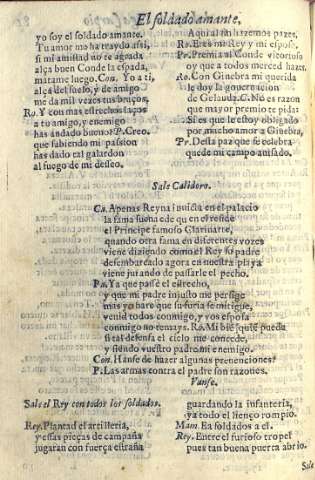 El soldado amante,
yo soy el soldado amante.
Tu amor me ha traydo assi,
si mi amistad no te agrada
alça buen Conde la espada,
matame luego. Con. Yo a ti,
alça del suelo, y de amigo
me da mil vezes tus braços,
Ro. Y con mas estrechos lazos
a tu amigo, y enemigo
has andado bueno. Pr. Creo.
que sabiendo mi passion
has dado tal galardon
al fuego de mi desseo.
Aqui al fin hazemos pazes,
Ro. Eres mi Rey y mi esposo,
Pr. Premia al Conde vitorioso
oy que a todos merced hazes.
Re. Con Ginebra mi querida
le doy la gouernacion
de Gelauda. C. No es razon
que mayor premio te pida
Si es que le estoy obligado
por mucho amor a Ginebra,
Pr. Desta paz que se celebra
quede mi campo auisado.
Sale Calidoro.
Ca. Apenas Reyna inuicta en el palacio
la fama suena de que en el reside
el Principe famoso Clarinarte,
quando otra fama en diferentes vozes
viene diziendo como el Rey su padre
desembarcado agora en nuestra playa
viene jurando de passarle el pecho.
Pr. Ya que passè el estrecho,
y que mi padre injusto me persigue
mas yo harè que su furia se mitigue,
venid todos conmigo, y vos esposa
conmigo no temays. Ro. Mi bié quié pueda
si tal defensa el cielo me concede,
y siendo vuestro padre mi enemigo.
Con. Hanse de hazer algunas preuenciones?
P. Las armas contra el padre son razones.
Vanse.
Sale el Rey con todos los soldados.
Rey. Plantad el artilleria,
y essas pieças de campaña
jugaran con fuerça estraña
guardando la infanteria,
ya todo el lienço rompio.
Mam. Ea soldados a el.
Rey. Entre el furioso tropel
pues tan buena puerta abrio.
Sale